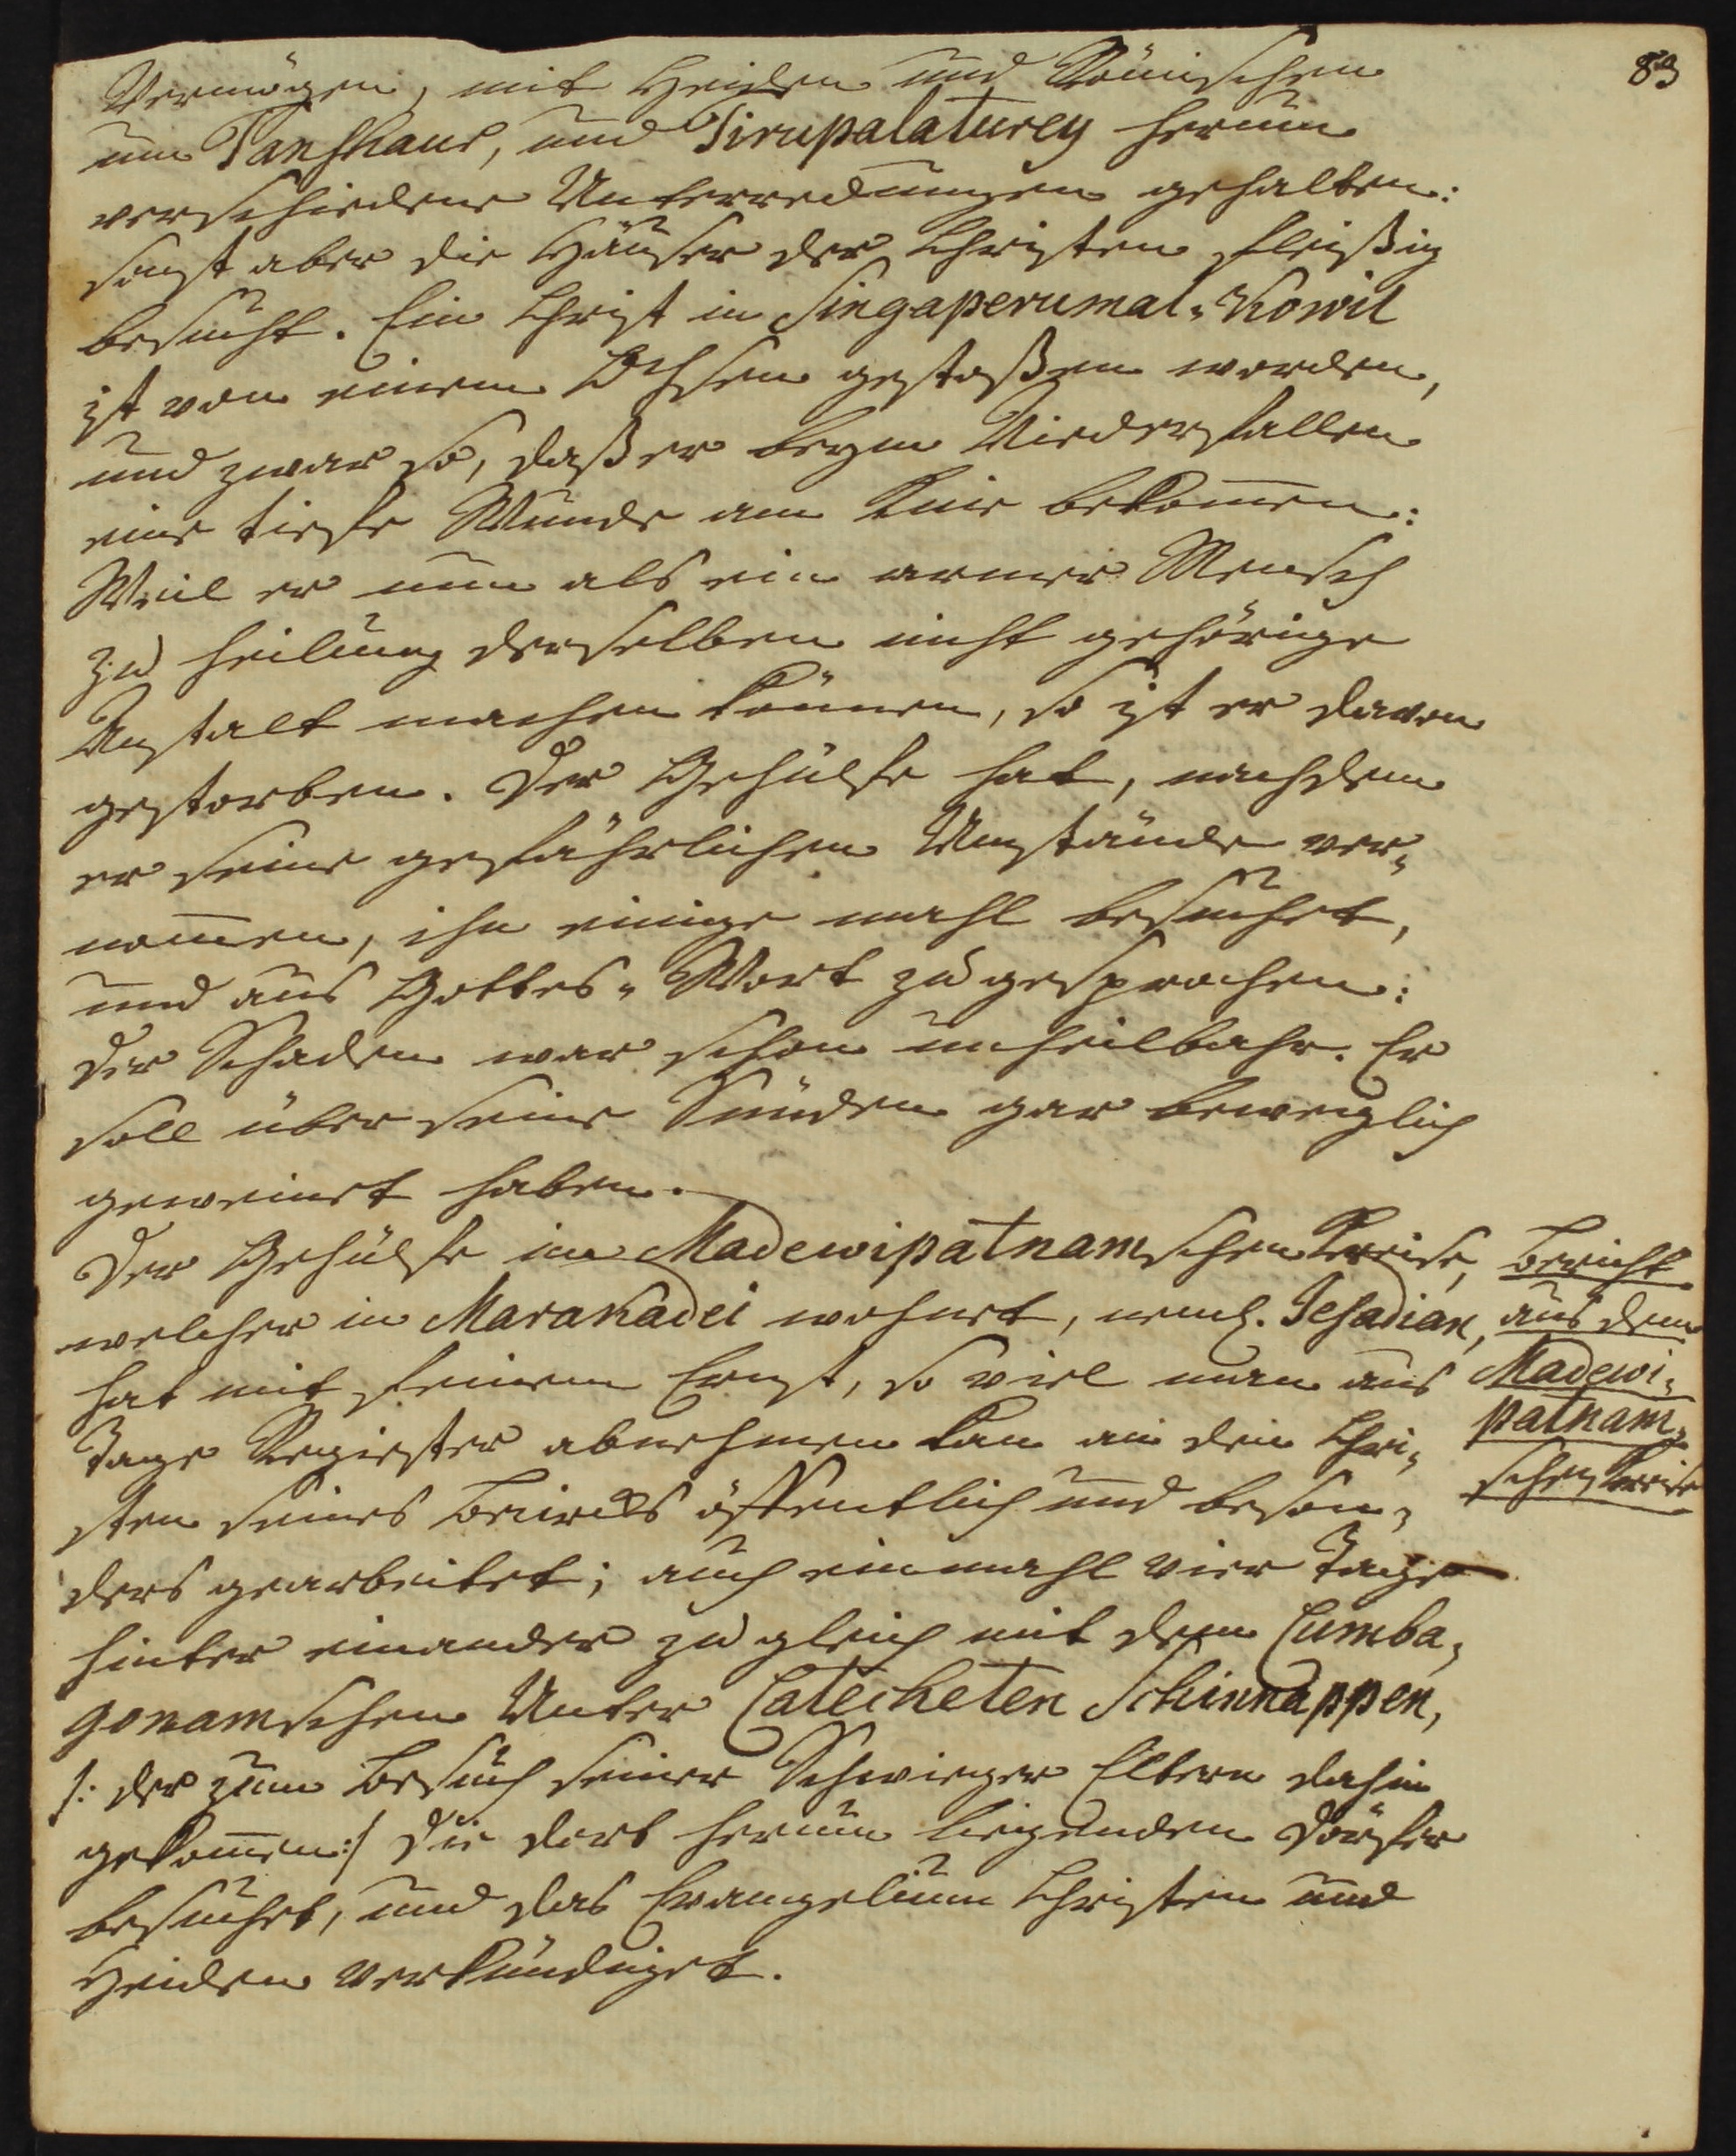 83
Vermögen, mit Heiden und Römischen
um Tanshaur, und Tirupalaturey herum
verschiedene Unterredungen gehalten:
sonst aber die Häuser der Christen fleißig
besucht. Ein Christ in Singaperumal-Kowil
ist von einem Ochsen gestoßen worden,
und zwar so, daß er beym Niederfallen
eine tiefe Wunde am Knie bekommen:
Weil er nun als ein armer Mensch
zu heilung derselben nicht gehörige
Anstalt machen können, so ist er davon
gestorben. Der Gehülfe hat, nachdem
er seine gefährlichen Umstände ver-
nommen, ihn einige mahl besuchet,
und aus Gottes-Wort zugesprochen:
der Schaden war schon unheilbahr. Er
soll über seine Sünden gar beweglich
geweinet haben.
Der Gehülfe im Madewipatnamschen Kreise,
welcher in Marakadei wohnet, neml. Jesadian,
hat mit seinem Ernst, so viel man aus
Tage Register abnehmen kan an den Chri-
sten seines Creises öffentlich und beson-
ders gearbeitet; auch einmahl vier Tage
hinter einander zugleich mit dem Cumba-
gonamschen Unter Catecheten Schinnappen,
/: der zum Besuch seiner Schwieger Eltern dahin
gekommen:/ die dort herum liegenden Dörfer
besuchet, und das Evangelium Christen und
Heiden verkündiget.
Bericht
aus dem
Madewi-
patnam-
schen Kreise